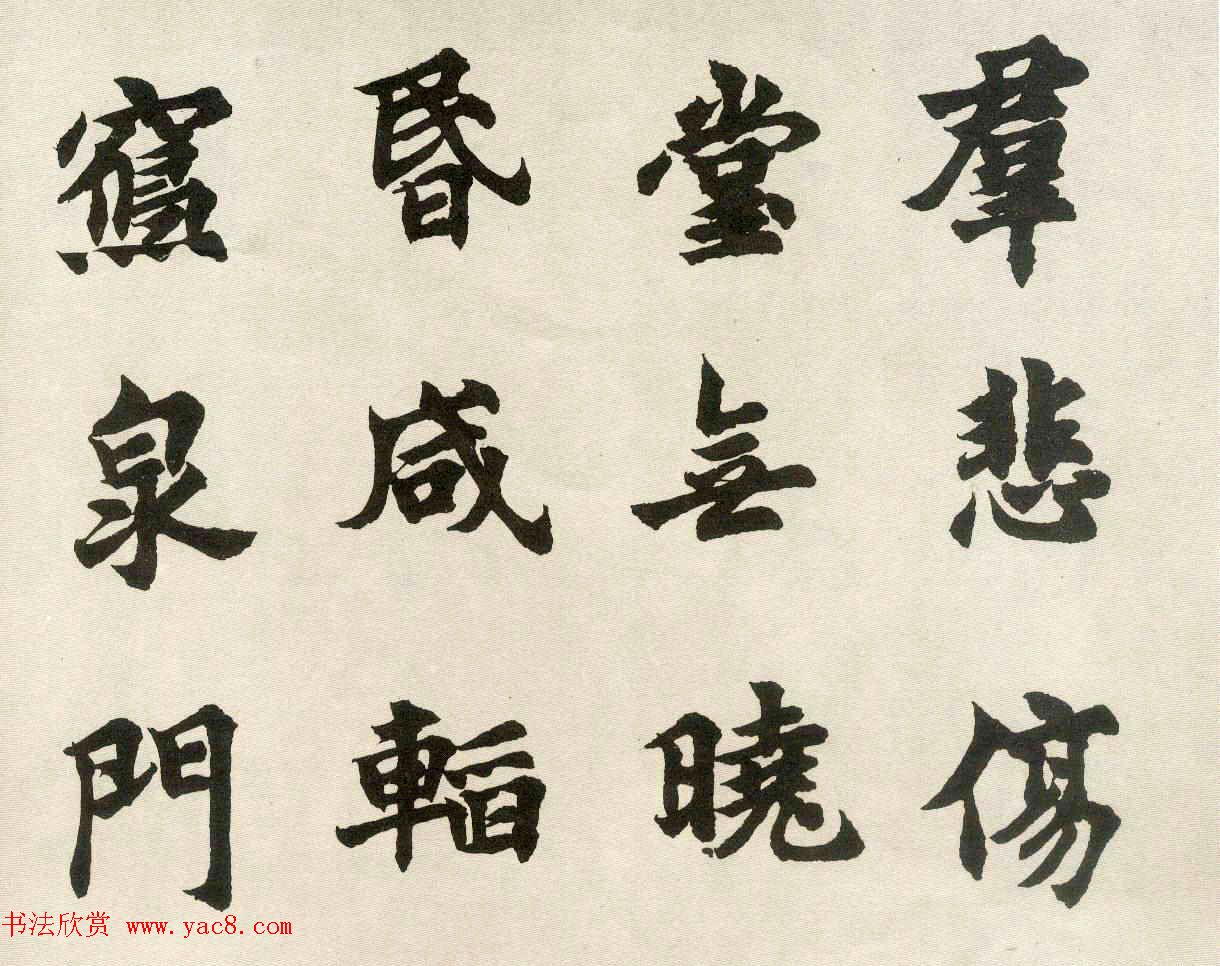 羣悲傷
堂無曉
昏咸韜
寢泉門
书法欣赏 www.yac8.com